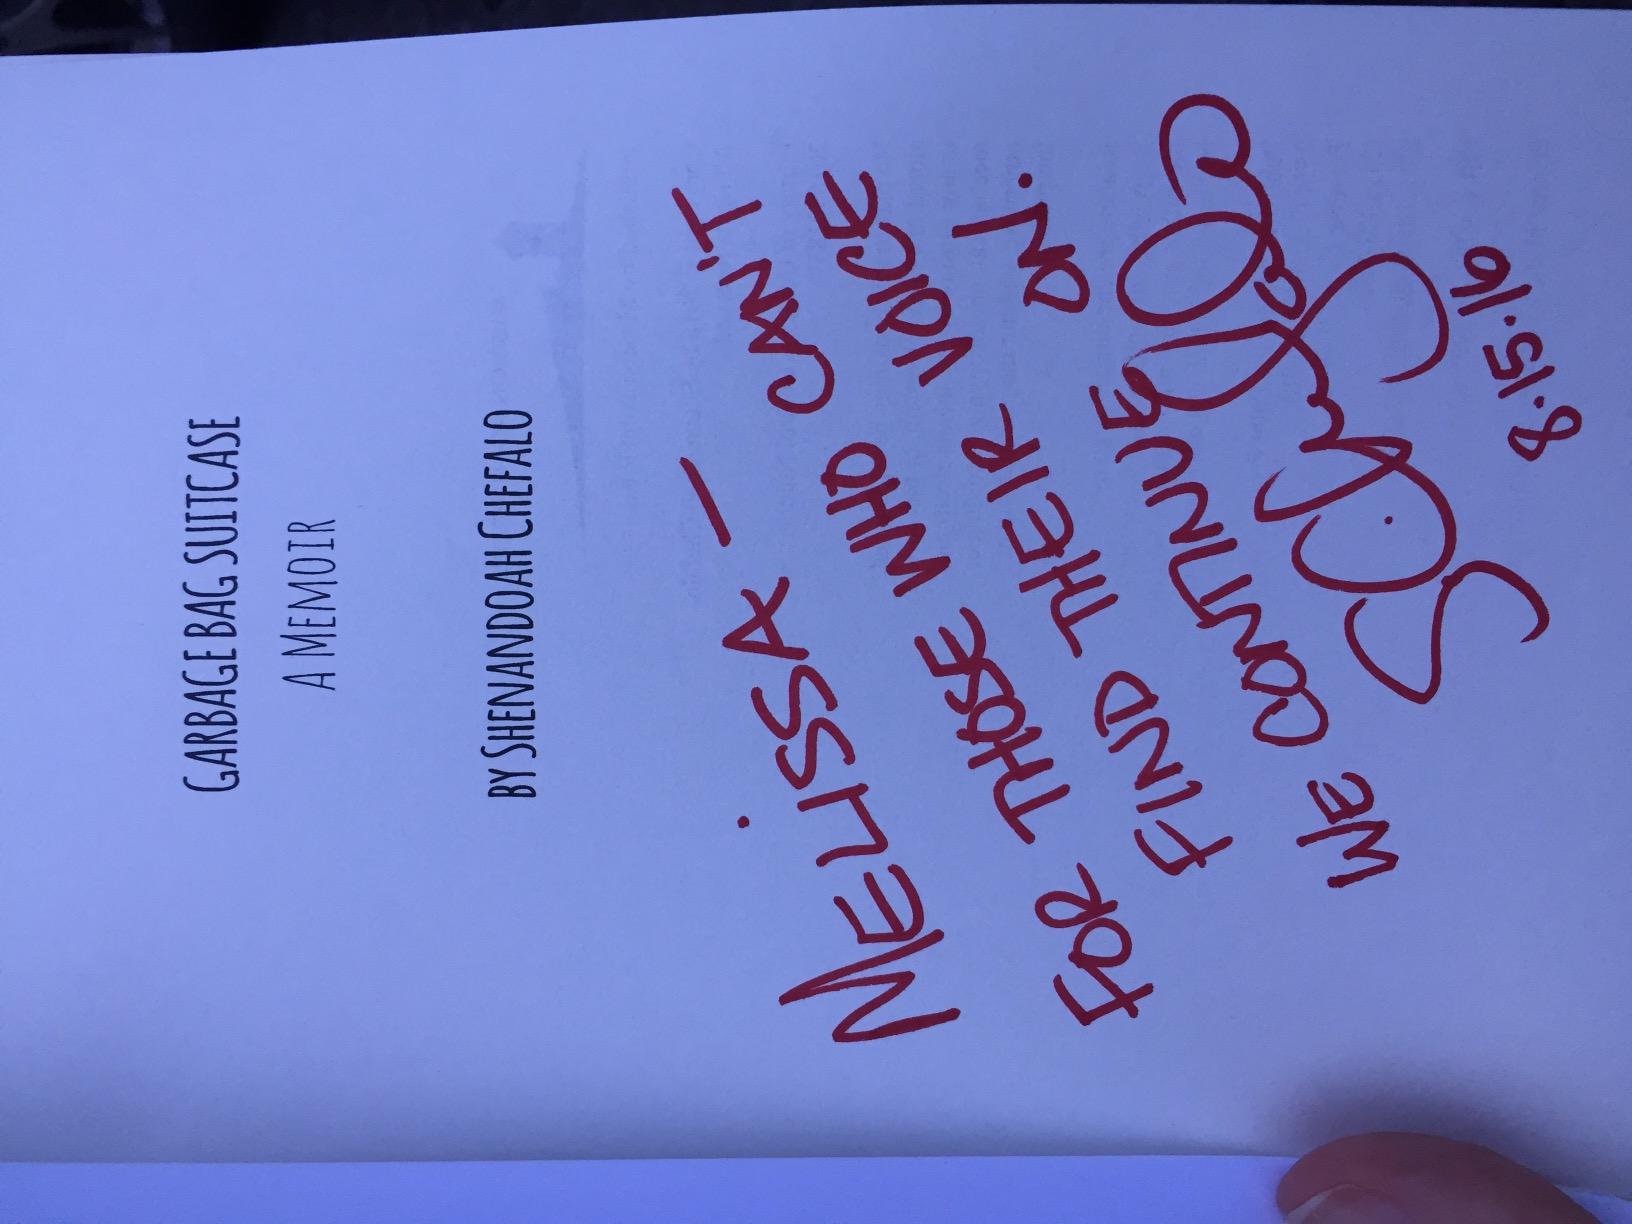 GARBAGE BAG SUITCASE
A MEMOIR
BY SHENANDOAH CHEFALO
MELISSA –
FOR THOSE WHO CAN'T
FIND THEIR VOICE
WE CONTINUE ON.
8.15.16